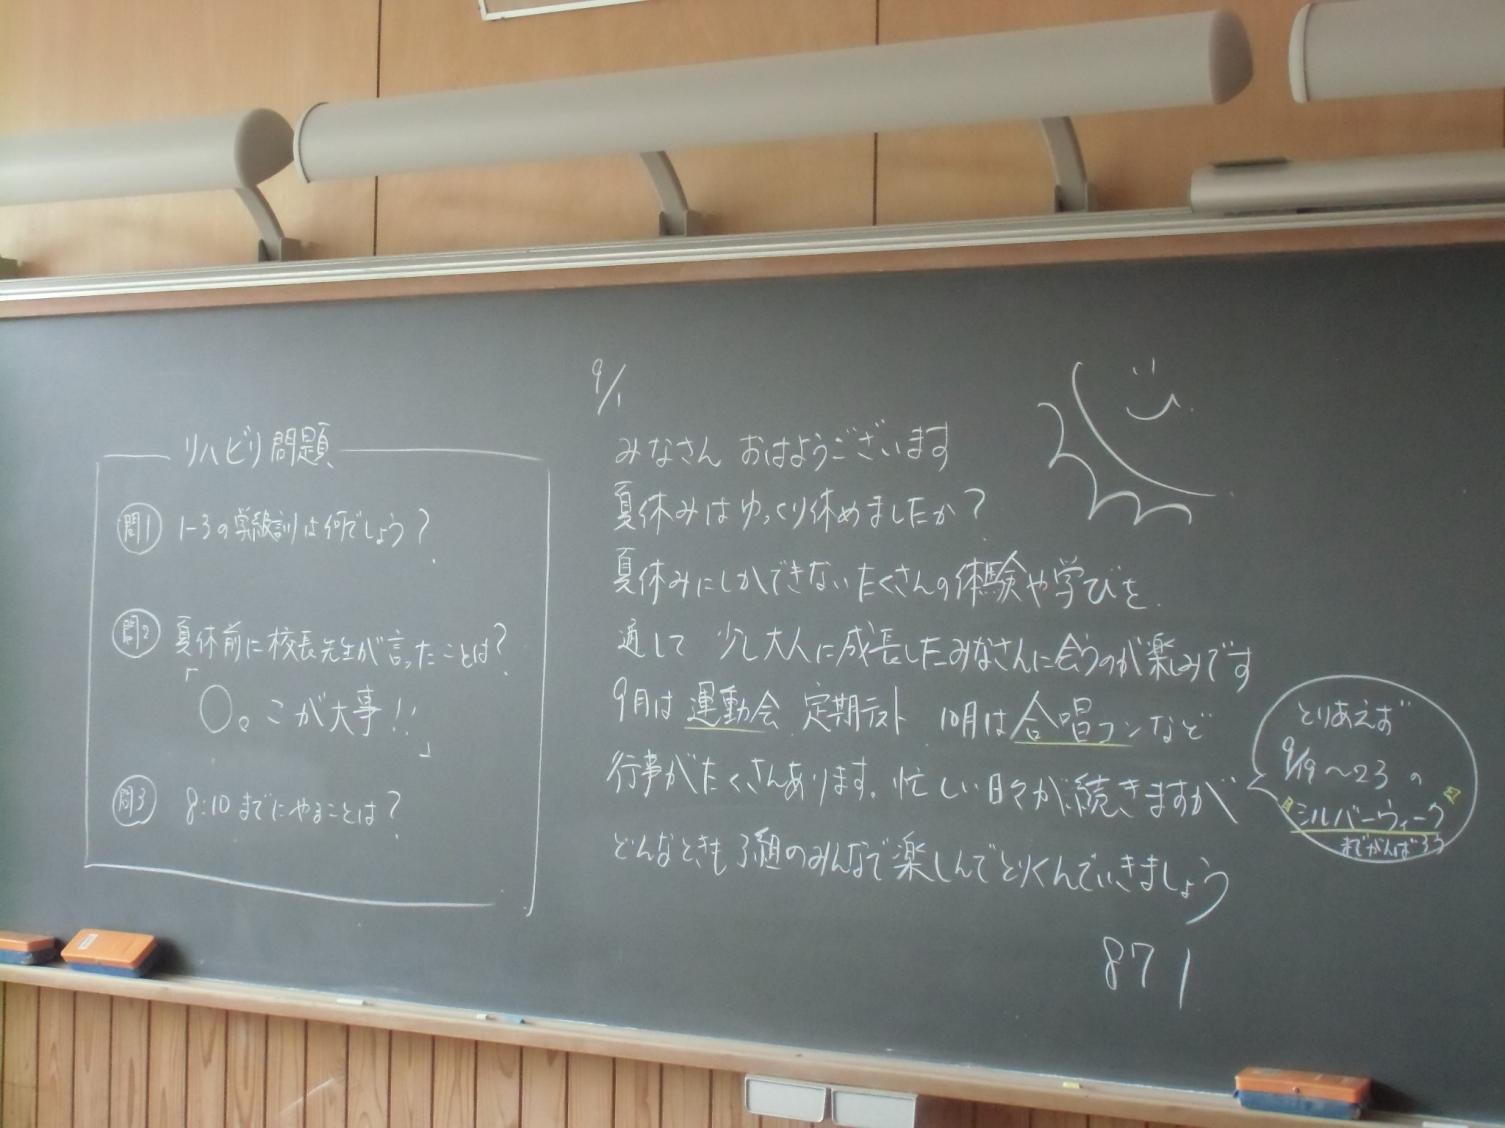 リハビリ問題
問1 1-3の学級訓は何でしょう?
問2 夏休前に校長先生が言ったことは?
「〇。こが大事!!」
問3 8:10までにやることは?
9/1
みなさん おはようございます
夏休みはゆっくり休めましたか?
夏休みにしかできないたくさんの体験や学びを
通して 少し大人に成長したみなさんに会うのが楽しみです
9月は運動会 定期テスト 10月は合唱コンなど
行事がたくさんあります。忙しい日々が続きますが
どんなときも3組のみんなで楽しんでとりくんでいきましょう
871
とりあえず
9/19〜23の
"シルバーウィーク"
までがんばろう